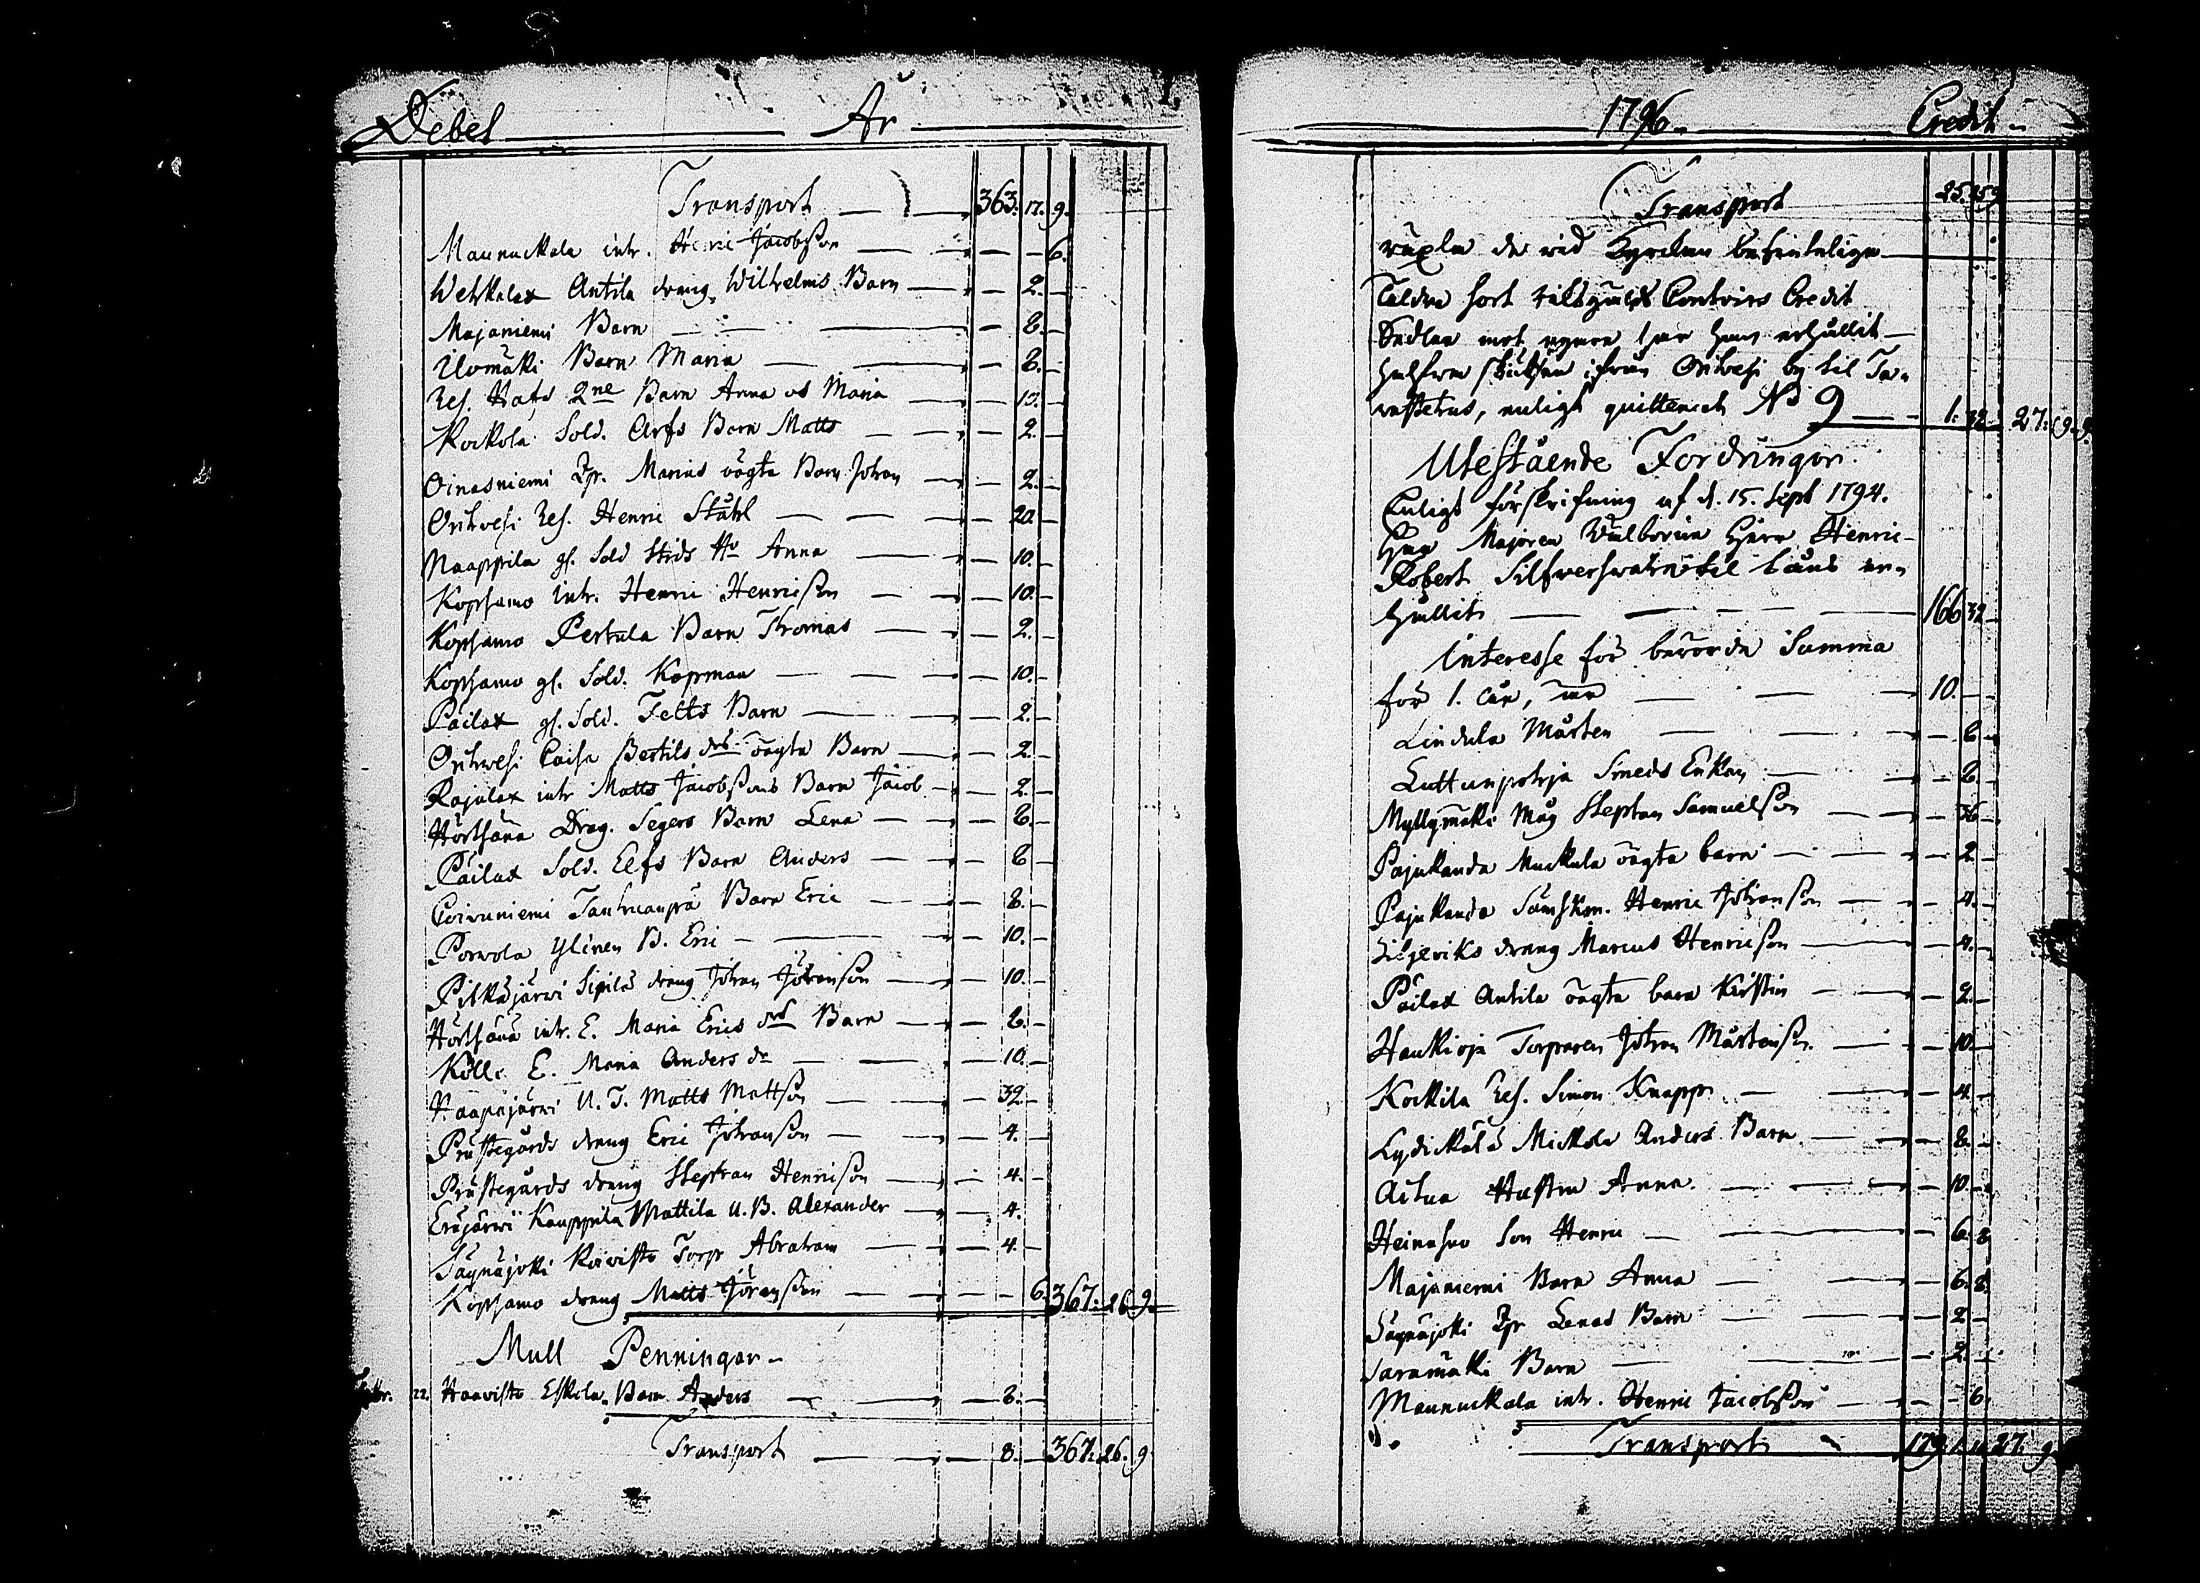 Debet År
Transport 363. 17. 9.
Maunuckala inh. Henric Jacobsson — — 6.
Wehkalax Antila dräng Wilhelms Barn — 2. —
Majaniemi Barn — 8. —
Ilomäki Barn Maria — 8. —
Res. 2ne Barn Anna os Maria — 10. —
Kockola Sold. Arfs Barn Matts — 2. —
Oinasniemi Marias oägta Barn Johan — 2. —
Orihvesi Res. Henric Ståhl — 20. —
Naappila gl. Sold Anna — 10. —
Kopsamo inh. Henric Henricsson — 10. —
Kopsamo Pertula Barn Thomas — 2. —
Kopsamo gl. Sold. Kopman — 10. —
Päilax gl. Sold. Felts Barn — 2. —
Orihvesi Caisa Bertils drs oägta Barn — 2. —
Rajalax inh Matts Jacobssons Barn Jacob — 2. —
Hörtsänä Drag. Segers Barn Lena — 8. —
Päilax Sold. Elfs Barn Anders — 8 —
Koivuniemi Barn Eric — 8. —
Porvola Ylinen B. Eric — 10. —
Pitkäjärvi Sipilä dräng Johan Johansson — 10. —
Hörtsänä inh. E. Maria Erics dr Barn — 8. —
E. Maria Anders dr — 10. —
Haapajärvi U. J. Matts Mattsson — 32. —
Prästegårds dräng Eric Johansson — 4. —
Prästegårds dräng Stephan Henricsson — 4. —
Eräjärvi Kauppila Mattila U. B. Alexander — 4.
Säynäjoki Koivisto Torp Abraham — 4. —
Kopsamo dräng Matts Göransson — — 6. 367. 26. 9.
Mull Penningar
22. Haavisto Eskola Barn Anders — 8. —
Transport — 8. — 367. 26. 9
1796. Credit
Transport 25. 25 9
växla de vid Kyrckan befintelige
Äldre fort Riksgälds Contoirs Credit
Sedlar mot nyare har han erhållit
skjutsen ifrån Orihvesi by til Ta-
vastehus, enligt quittence N 9 — 1. 32 27. 9. 9.
Utestående Fordringar
Enligt förskrifning af d. 15. Sept 1794.
Har Majoren Wälborne Herr Henric
Robert Silfversvahn til låns er-
hållit — 166 32 —
Interesse för berörde Summa
för 1. år, — 10. — —
Lindula Mårten — 8 —
Luttunpohja Smeds Enkan — 8. —
Myllymäki Måg Stephan Samuelsson — 36 —
Pajukanda Muckula oägta barn — 2 —
Pajukanda Henric Johansson — 4. —
Liljeriks dräng Marcus Henricsson — 4. —
Päilax Antila oägta barn Kirstin — 2. —
Haukioja Torparen Johan Mårtensson — 10. —
Kockila Res. Simon Knapp — 4. —
Lydickälä Mickola Anders Barn — 8. —
Hustru Anna — 10. —
Heinasuo Son Henric — 6. 8
Majaniemi Barn Anna — 6. 8.
Säynäjoki Lenas Barn — 2 —
Saramäki Barn — 2. —
Maunuckala inh. Henric Jacobsson — — 6.
Transport 179. 27. 9